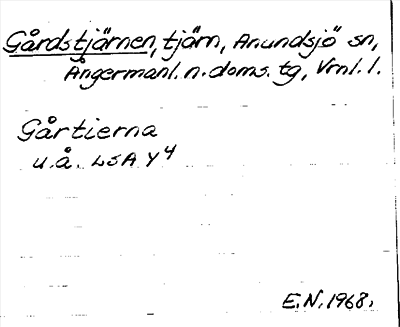 Gårdstjärnen, tjärn, Anundsjö sn,
Ångermanl. n. doms. tg, Vrnl. l.
Gårtierna
u.å. LSA Y4
E.N. 1968.